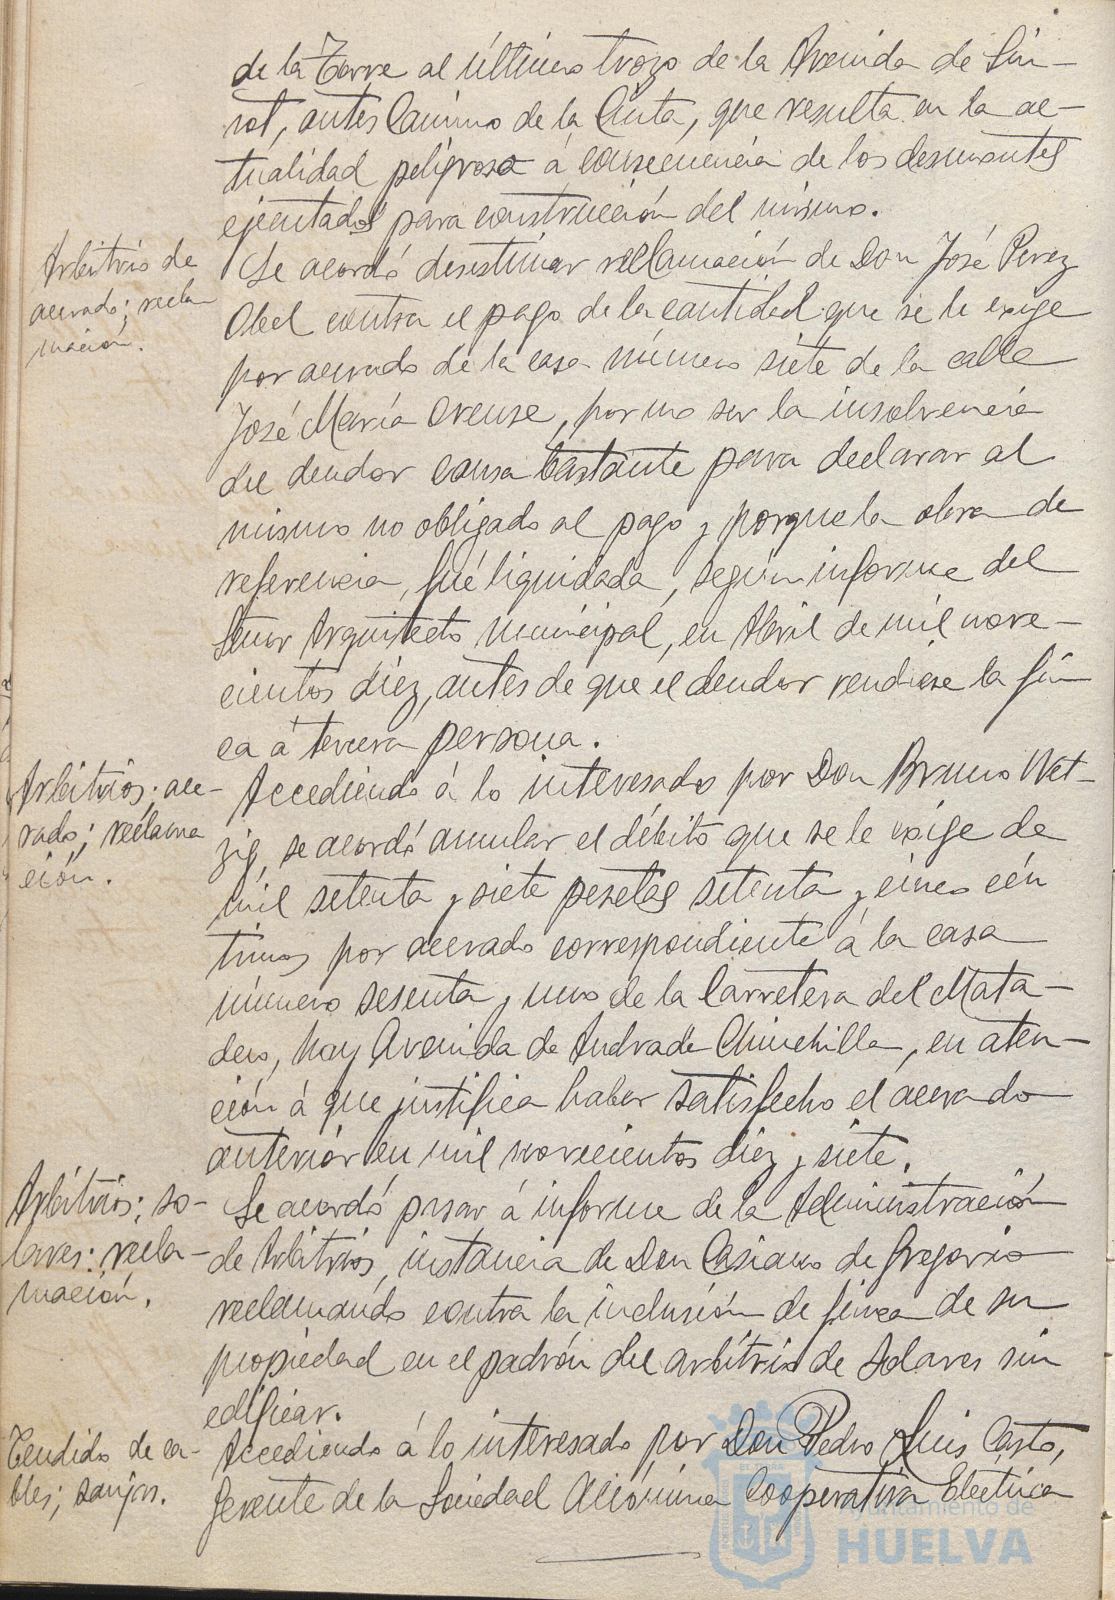 de la Torre al último trozo de la Avenida de Sun-
rot, antes Camino de la Cinta, que resulta en la ac-
tualidad peligrosa á consecuencia de los desmontes
ejecutados para construcción del mismo.
Arbitrio de
acerado; recla
mación.
Se acordó desestimar reclamación de Don José Perez
Abel contra el pago de la cantidad que se le exige
por acerado de la casa número siete de la calle
José María Orense, por no ser la insolvencia
del deudor causa bastante para declarar al
mismo no obligado al pago y porque la obra de
referencia, fué liquidada, según informe del
Señor Arquitecto municipal, en Abril de mil nove-
cientos diez, antes de que el deudor vendiese la fin
ca á tercera persona.
Arbitrios; ace-
rado; reclama
ción.
Accediendo á lo interesado por Don Bruno Wet-
zig, se acordó anular el débito que se le exige de
mil setenta y siete pesetas setenta y cinco cén
timos por acerado correspondiente á la casa
número sesenta y uno de la Carretera del Mata-
dero, hoy Avenida de Andrade Chinchilla, en aten-
ción á que justifica haber satisfecho el acerado
anterior en mil novecientos diez y siete.
Arbitrios; so-
lares: recla-
mación.
Se acordó pasar á informe de la Administración
de Arbitrios, instancia de Don Casiano de Gregorio
reclamando contra la inclusión de finca de su
propiedad en el padrón del arbitrio de Solares sin
edificar.
Tendido de ca-
bles; zanjas.
Accediendo á lo interesado por Don Pedro Luis Casto,
Gerente de la Sociedad Anónima Cooperativa Eléctrica
Ayuntamiento de
HUELVA